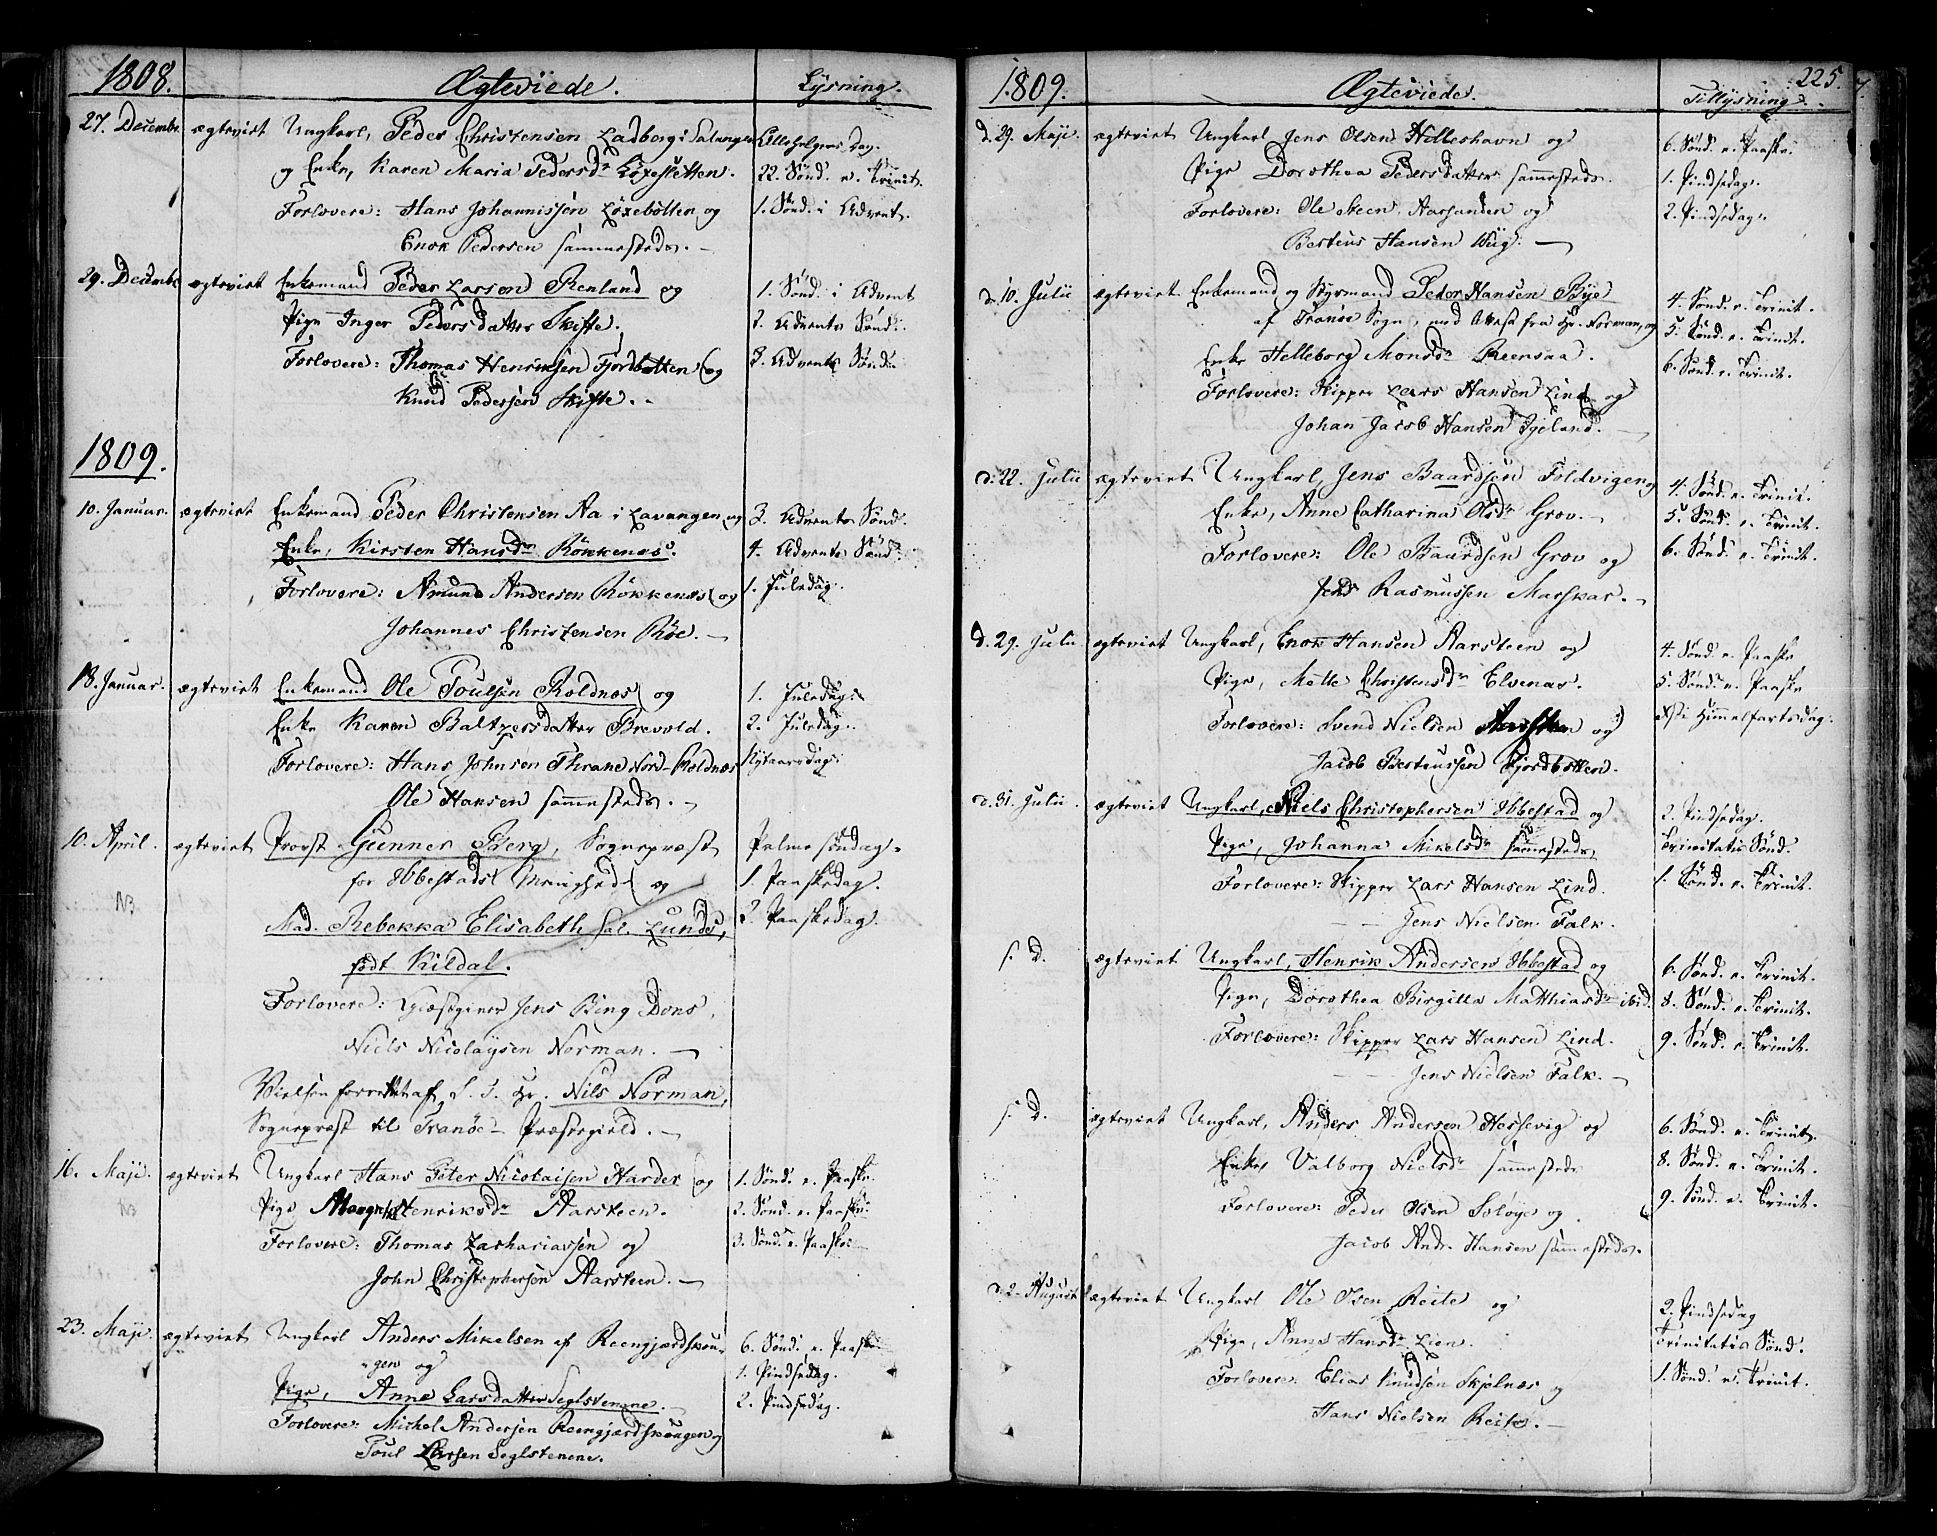 1808.
Ægteviede.
Lysning.
27. Decembr. ægteviet Ungkarl, Peder Christensen Ladberg i Salangen
og Enke, Karen Maria Pedersdr
Forlovere: Hans Johannissen og
Enok Pedersen sammesteds.
Alle helgens Dag.
22. Sønd. e. Trinit.
1. Sønd. i Advent.
29. Decembr ægteviet Enkemand Peder Larsen Renland og
Pige Inger Pedersdatter Skifte.
Forlovere: Thomas Henriksen Fjordbotten og
Knud Pedersen Skifte.
1. Sønd. i Advent
2. Advents Sønd:
3. Advents Sønd:
1809.
10. Januar. ægteviet Enkemand Peder Christensen Aa i Lavangen og
Enke, Kirsten Hansdr Rökkenæs.
Forlovere: Amund Andersen Rökkenæs og
Johannes Christensen Röe.
3. Advents Sønd.
4. Advents Sønd.
1. Juledag.
18. Januar. ægteviet Enkemand Ole Poulsen Roldnæs og
Enke Karen Baltzersdatter Brevold.
Forlovere: Hans Johnsen Thrane Nord-Roldnæs
Ole Hansen sammesteds.
1. Juledag.
2. Juledag.
Nytaarsdag.
10. April. ægteviet Provst Gunner Berg, Sognepræst
for Ibbestads Menighed og
Mad. Rebekka Elisabeth sal. Lunds,
født Kildal.
Forlovere: Giæstgiver Jens Bing Dons,
Niels Nicolaysen Norman.
Vielsen forrettet af S. T. Hr. Nils Norman,
Sognepræst til Tranöe Præstegield.
NB
Palme søndag.
1. Paaskedag.
2. Paaskedag.
16. Maji. ægteviet Ungkarl Hans Peter Nicolaisen Harder og
Pige Henriksdr Aarsteen.
Forlovere: Thomas Zachariassen og
John Christophersen Aarsteen.
NB
1. Sønd. e. Paaske
2. Sønd. e. Paaske
3. Sønd. e. Paaske
23. Maji. ægteviet Ungkarl Anders Mikelsen af Reengjærdskou-
gen og
Pige, Anne Larsdatter Seglstenene.
Forlovere: Mickel Andersen Reengjærdskougen og
Poul Larsen Seglstenene.
6. Sønd. e. Paaske
1. Pindsedag.
2. Pindsedag.
1809.
Ægteviede.
225.
Tillysning.
d. 29. Maji ægteviet Ungkarl Jens Olsen Hilleshavn og
Pige Dorothea Pedersdatter sammesteds.
Forlovere: Ole Steen Aarsanden og
Berteus Hansen Wiig.
6. Sønd. e. Paaske.
1. Pindsedag.
2. Pindsedag.
d. 10. Julii ægteviet Enkemand og Styrmand Peder Hansen Bye
af Tranöe Sogn, med Attest fra Hr. Norman, og
Enke Helleborg Monsdr Reensaa.
Forlovere: Skipper Lars Hansen Lind og
Johan Jacob Hansen
4. Sønd. e. Trinit.
5. Sønd. e. Trinit.
6. Sønd. e. Trinit.
d. 22. Julii ægteviet Ungkarl, Jens Baardsen Foldvigen og
Enke, Anne Catharina Olsdr Grov.
Forlovere: Ole Baardsen Grov og
Jens Rasmussen Marskar.
4. Sønd. e. Trinit.
5. Sønd. e. Trinit.
6. Sønd. e. Trinit.
d. 29. Julii ægteviet Ungkarl, Enok Hansen Aarsteen og
Pige, Mette Christensdr Elvenæs.
Forlovere: Svend Nielsen Aarsteen og
Jacob Berteussen Fjordbotten.
4. Sønd. e. Paaske
5. Sønd. e. Paaske
Xsti Himmelfartsdag.
d. 31. Julii ægteviet Ungkarl, Niels Christophersen Ibbestad og
Pige, Johanna Mikelsdr sammesteds.
Forlovere: Skipper Lars Hansen Lind.
Jens Nielsen Falk.
2. Pindsedag.
Trinitatis Sønd.
1. Sønd. e. Trinit.
s. d. ægteviet Ungkarl, Henrik Andersen Ibbestad og
Pige, Dorothea Birgitta Matthiasdr ibid.
Forlovere: Skipper Lars Hansen Lind.
Jens Nielsen Falk.
6. Sønd. e. Trinit.
8. Sønd. e. Trinit.
9. Sønd. e. Trinit.
s. d. ægteviet Ungkarl, Anders Andersen Hessevig og
Enke, Valborg Nielsdr sammesteds
Forlovere: Peder Olsen Soløye og
Jacob Andr. Hansen sammesteds.
6. Sønd. e. Trinit.
8. Sønd. e. Trinit.
9. Sønd. e. Trinit.
d. 2. August ægteviet Ungkarl Ole Olsen Reite og
Pige, Anne Hansdr Lien.
Forlovere: Elias Knudsen Skjelnæs og
Hans Nielsen Reite.
2. Pindsedag
Trinitatis Sønd.
1. Sønd. e. Trinit.